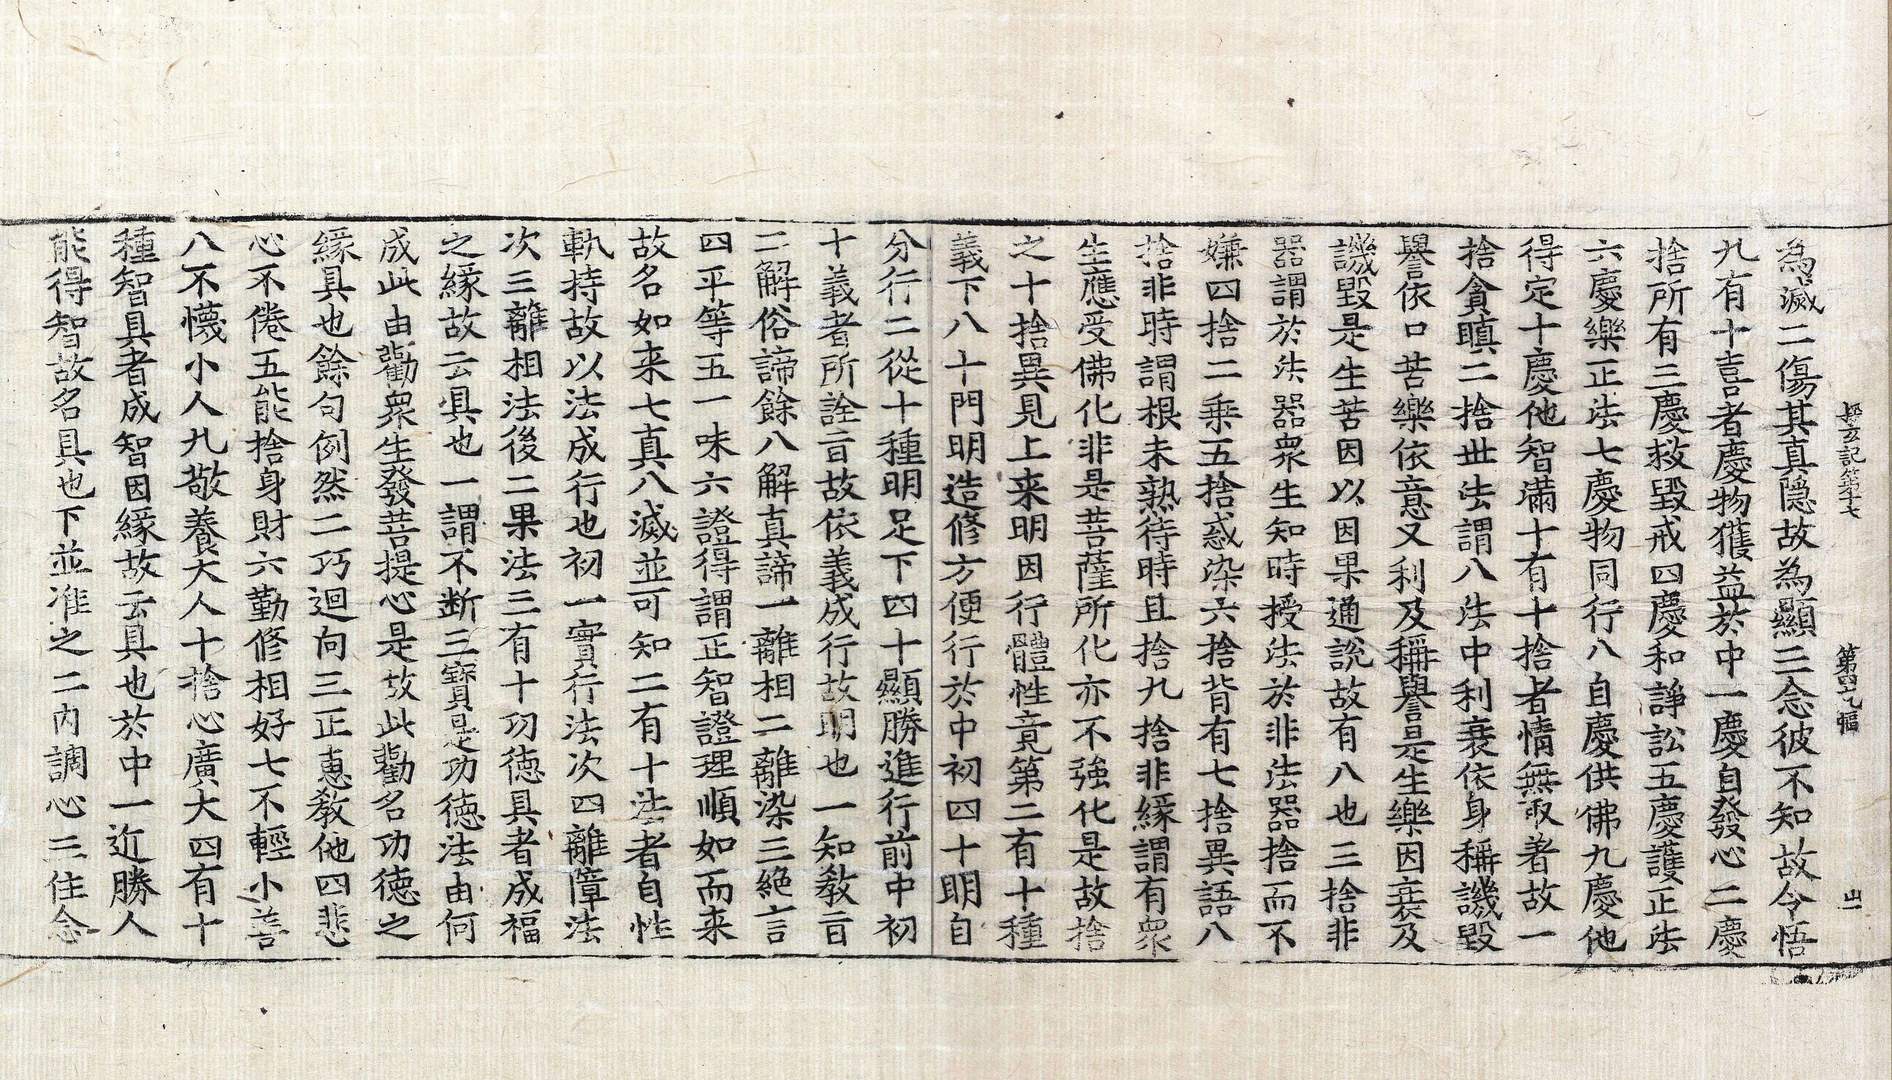 探玄記第十七 第四九幅 出
為滅二傷其真隱故為顯三念彼不知故今悟
九有十喜者慶物獲益於中一慶自發心二慶
捨所有三慶救毀戒四慶和諍訟五慶護正法
六慶樂正法七慶物同行八自慶供佛九慶他
得定十慶他智滿十有十捨者情無取著故一
捨貪瞋二捨世法謂八法中利衰依身稱譏毀
譽依口苦樂依意又利及稱譽是生樂因衰及
譏毀是生苦因以因果通說故有八也三捨非
器謂於法器眾生知時授法於非法器捨而不
嫌四捨二乘五捨惑染六捨背有七捨異語八
捨非時謂根未熟待時且捨九捨非緣謂有眾
生應受佛化非是菩薩所化亦不強化是故捨
之十捨異見上来明因行體性竟第二有十種
義下八十門明造修方便行於中初四十明自
分行二從十種明足下四十顯勝進行前中初
十義者所詮旨故依義成行故明也一知教旨
二解俗諦餘八解真諦一離相二離染三絕言
四平等五一味六證得謂正智證理順如而来
故名如来七真八滅並可知二有十法者自性
軌持故以法成行也初一實行法次四離障法
次三離相法後二果法三有十功德具者成福
之緣故云具也一謂不断三寶是功德法由何
成此由勸眾生發菩提心是故此勸名功德之
緣具也餘句例然二巧迴向三正惠教他四悲
心不倦五能捨身財六勤修相好七不輕小善
八不懱小人九敬養大人十捨心廣大四有十
種智具者成智因緣故云具也於中一近勝人
能得智故名具也下並准之二內調心三住念